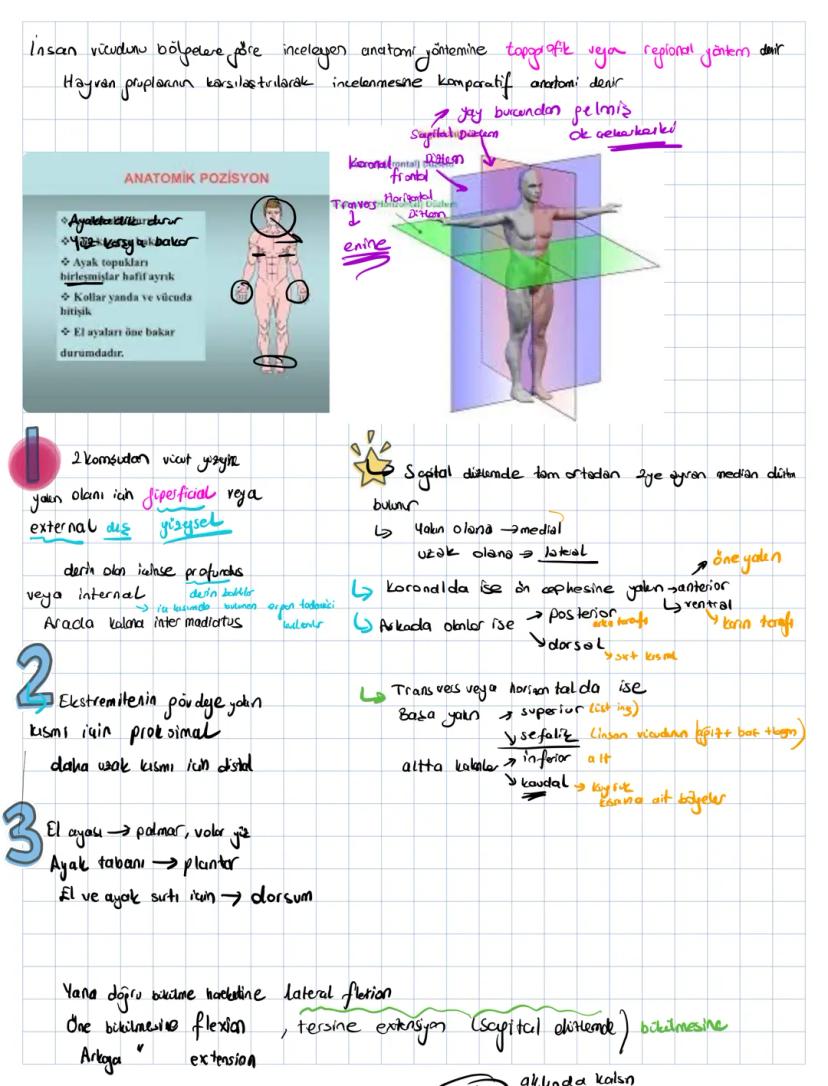 İnsan vücudunu bölgelere göre inceleyen anatomi yöntemine topografik veya regional yöntem denir
Hayvan gruplarının karşılaştırılarak incelenmesine komparatif anatomi denir
yay burcundan gelmiş
ok çekerkenki
Sagital Düzlem
Koronal Düzlem
frontal
Transvers Horizontal
Düzlem
enine
ANATOMİK POZİSYON
Ayakta dik durur
Yüz karşıya bakar
❖ Ayak topukları
birleşmişlar hafif ayrık
❖ Kollar yanda ve vücuda
bitişik
❖ El ayaları öne bakar
durumdadır.
1
2 komşudan vücut yüzeyine
yakın olanı için süperficial veya
external dış yüzeysel
derin olan içinse profundus
veya internal derin
→ iç kısımda bulunan organ
Arada kalana inter madiatus
kullanılır
2
Ekstremitenin gövdeye yakın
kısmı için proksimal
daha uzak kısmı için distal
3
El ayası → palmar, volar yüz
Ayak tabanı → plantar
El ve ayak sırtı için → dorsum
Sagital düzlemde tam ortadan 2ye ayıran median düzlem
bulunur
Yakın olana → medial
uzak olana → lateral
Koronalda ise ön cephesine yakın → anterior
öne yakın
ventral
karın tarafı
Arkada olanlar ise → posterior
arka tarafı
dorsal
sırt kısmı
Transvers veya horizontalda ise
Başa yakın → superior (üst ing)
sefalik (insan vücudunun baş
altta kalanlar → inferior alt
kaudal → kuyruk
kısmına ait bölgeler
Yana doğru bükülme hareketine lateral flexion
Öne bükülmesine flexion, tersine extensiyon (sagital düzlemde) bükülmesine
Arkaya " extension
aklında kalsın